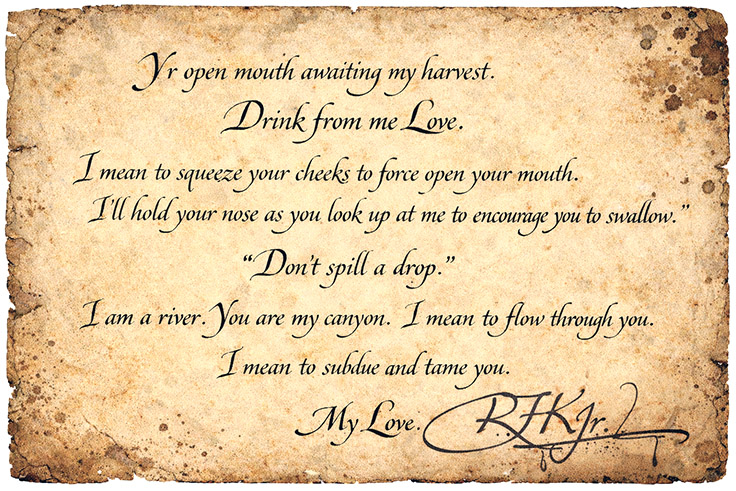 Yr open mouth awaiting my harvest.
Drink from me Love.
I mean to squeeze your cheeks to force open your mouth.
I'll hold your nose as you look up at me to encourage you to swallow.”
“Don't spill a drop.”
I am a river. You are my canyon. I mean to flow through you.
I mean to subdue and tame you.
My Love. RFKJr.